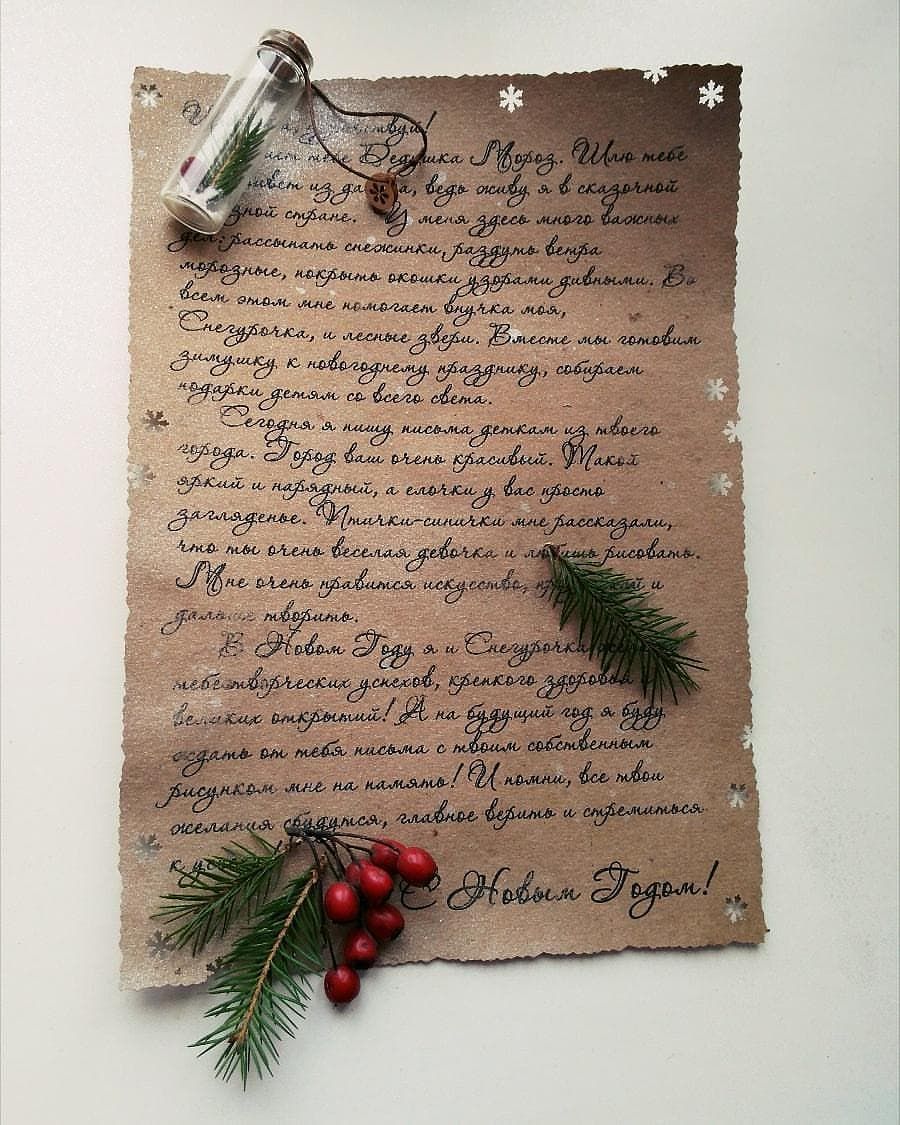 Дедушка Мороз. Шлю тебе
из ведь живу я в сказочной
стране. У меня здесь много важных
дел: рассыпать снежинки, раздуть ветра
морозные, покрыть окошки узорами дивными. Во
всем этом мне помогает внучка моя,
Снегурочка, и лесные звери. Вместе мы готовим
зимушку к новогоднему празднику, собираем
подарки детям со всего света.
Сегодня я пишу письма деткам из твоего
города. Город ваш очень красивый. Такой
яркий и нарядный, а елочки у вас просто
загляденье. Птички-синички мне рассказали,
что ты очень веселая девочка и любишь рисовать.
Мне очень нравится искусство, и
дальше творить.
В Новом Году я и Снегурочка
тебе творческих успехов, крепкого здоровья и
великих открытий! А на будущий год я буду
ждать от тебя письма с твоим собственным
рисунком мне на память! И помни, все твои
желания сбудутся, главное верить и стремиться
к
С Новым Годом!